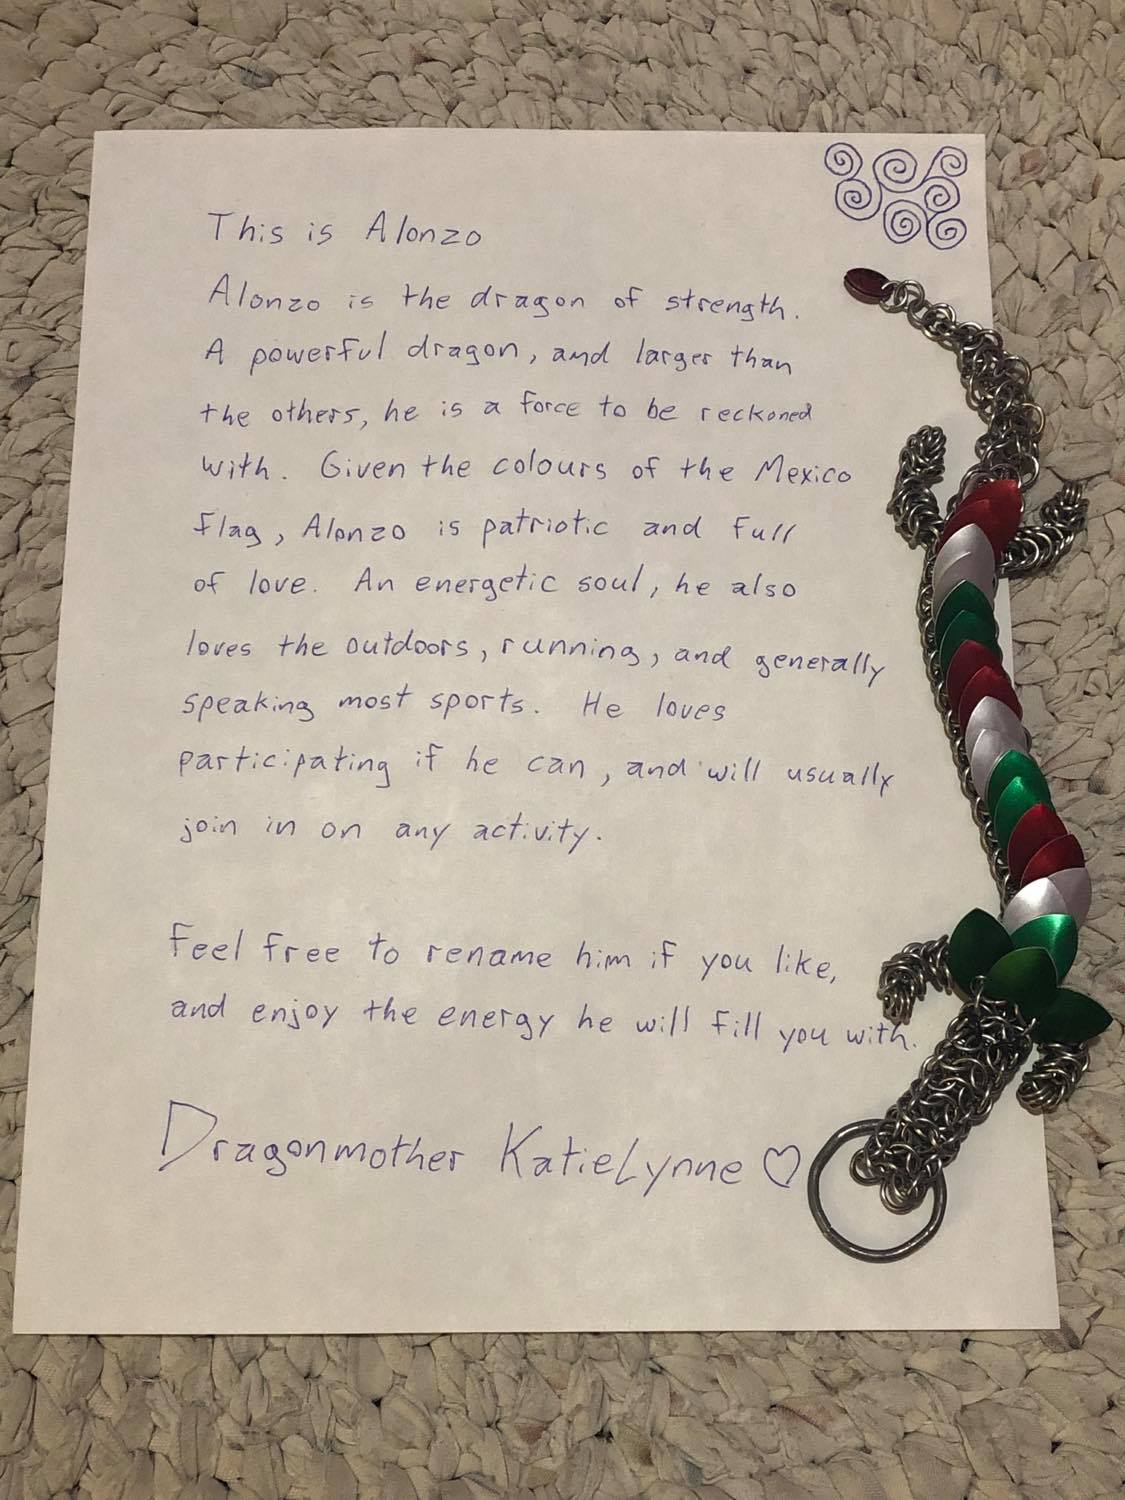 This is Alonzo
Alonzo is the dragon of strength.
A powerful dragon, and larger than
the others, he is a force to be reckoned
with. Given the colours of the Mexico
flag, Alonzo is patriotic and full
of love. An energetic soul, he also
loves the outdoors, running, and generally
speaking most sports. He loves
participating if he can, and will usually
join in on any activity.
Feel free to rename him if you like,
and enjoy the energy he will fill you with.
Dragonmother KatieLynne ♡